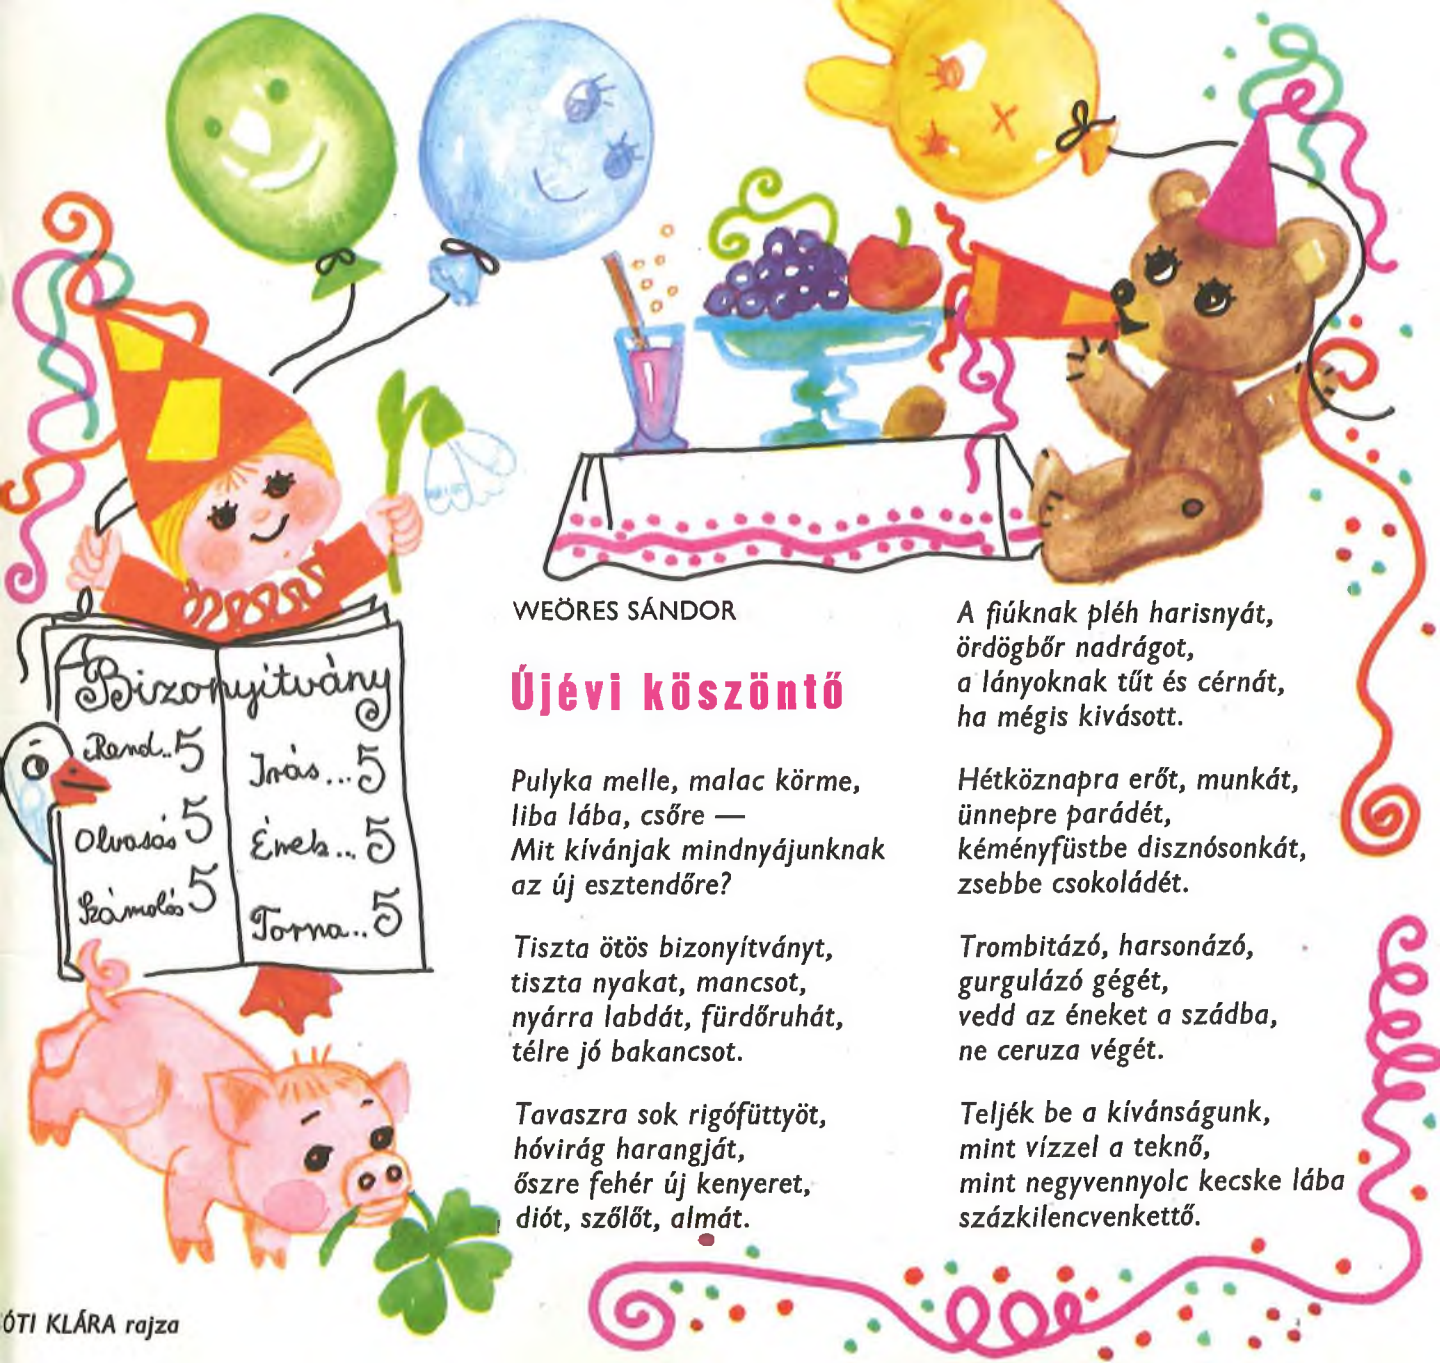 Bizonyítvány
Rend..5
Olvasás 5
Számolás 5
Irás...5
Ének...5
Torna..5
WEÖRES SÁNDOR
Újévi köszöntő
Pulyka melle, malac körme,
liba lába, csőre —
Mit kívánjak mindnyájunknak
az új esztendőre?
Tiszta ötös bizonyítványt,
tiszta nyakat, mancsot,
nyárra labdát, fürdőruhát,
télre jó bakancsot.
Tavaszra sok rigófüttyöt,
hóvirág harangját,
őszre fehér új kenyeret,
diót, szőlőt, almát.
A fiúknak pléh harisnyát,
ördögbőr nadrágot,
a lányoknak tűt és cérnát,
ha mégis kivásott.
Hétköznapra erőt, munkát,
ünnepre parádét,
kéményfüstbe disznósonkát,
zsebbe csokoládét.
Trombitázó, harsonázó,
gurgulázó gégét,
vedd az éneket a szádba,
ne ceruza végét.
Teljék be a kívánságunk,
mint vízzel a teknő,
mint negyvennyolc kecske lába
százkilencvenkettő.
ÓTI KLÁRA rajza